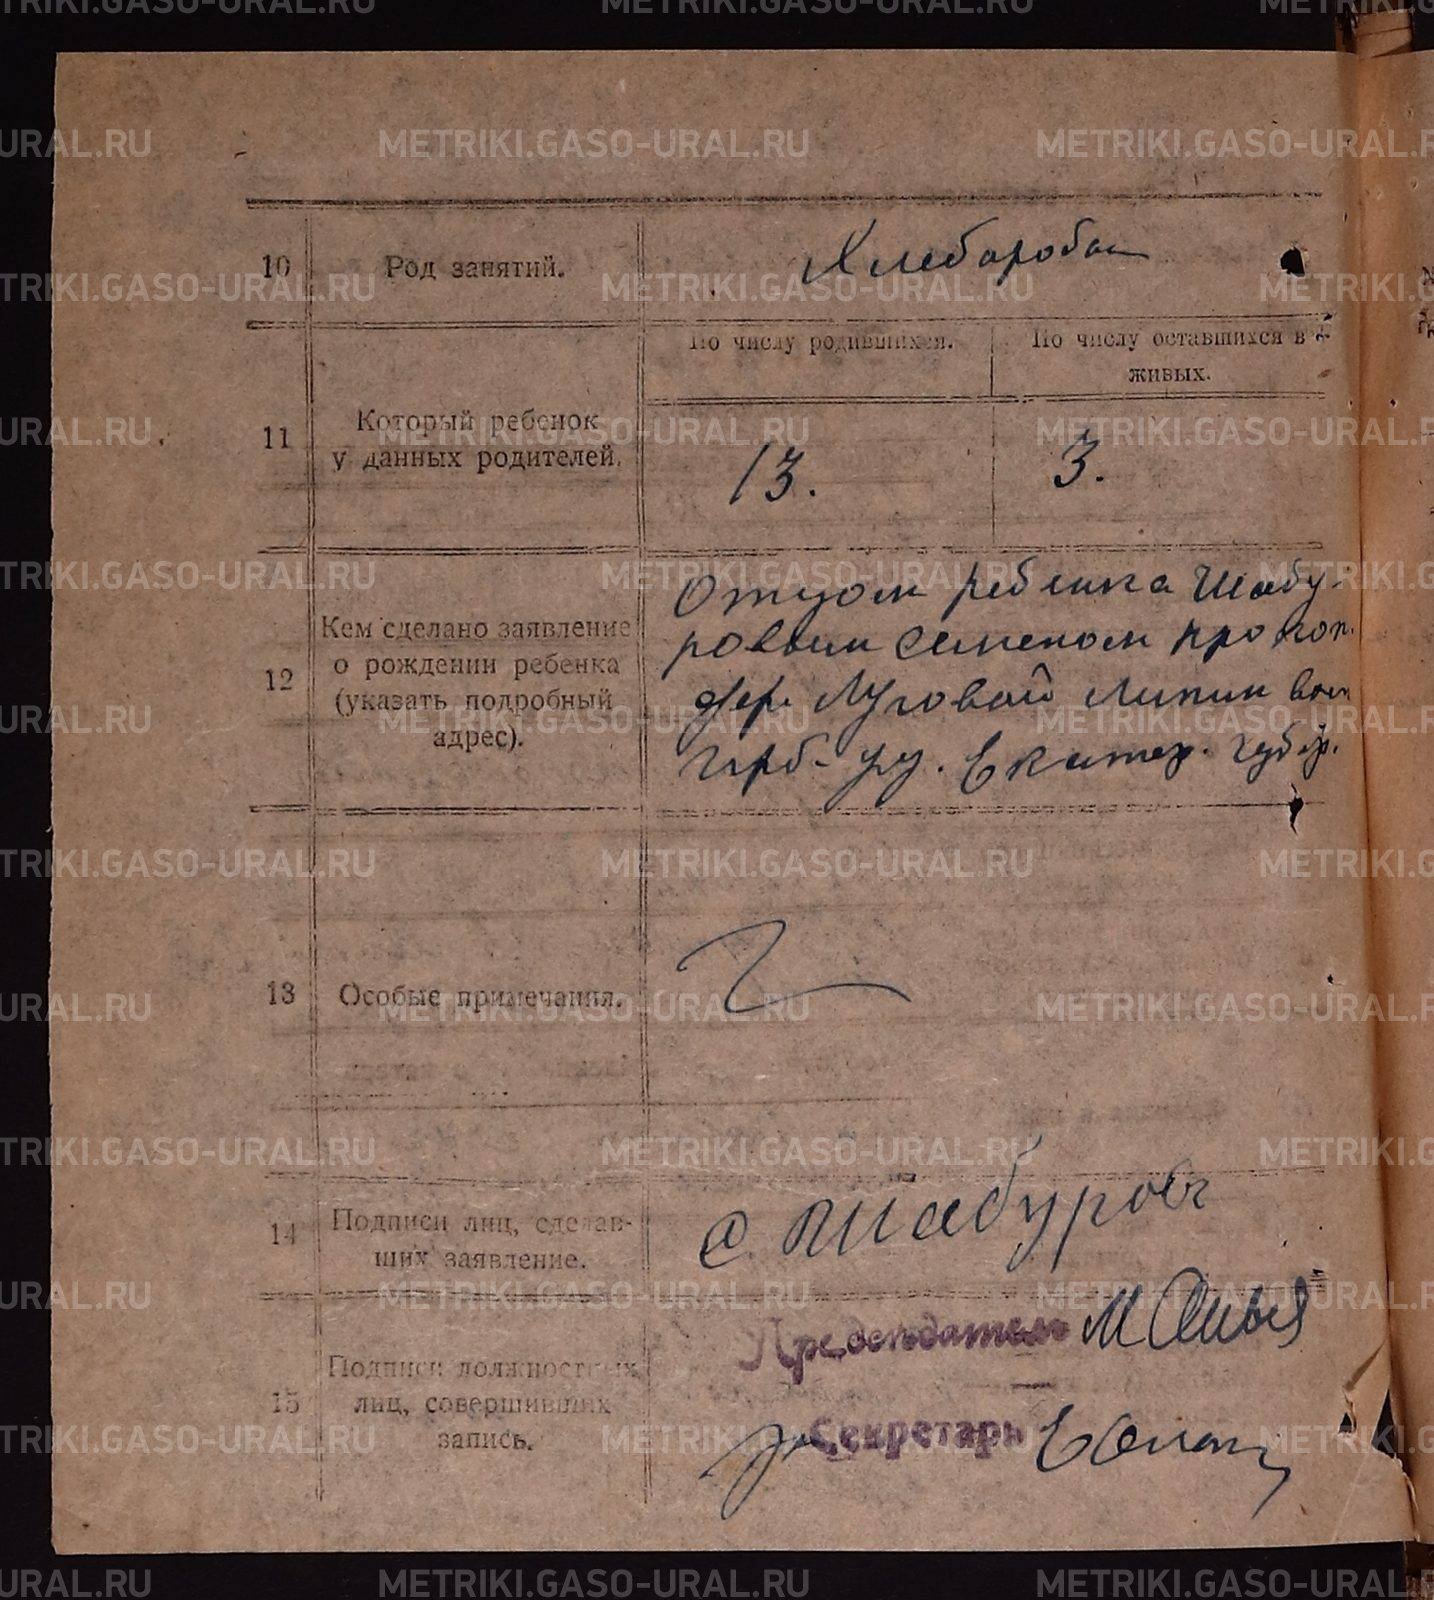 10 Род занятий. Хлебороба
11 Который ребенок
у данных родителей.
По числу родившихся.
По числу оставшихся в
живых.
13.
3.
12 Кем сделано заявление
о рождении ребенка
(указать подробный
адрес).
Отцом ребенка Шабу-
ровым Семеном прокоп.
дер. Луговой Липин вол
ирб. уу. Екатер. губер.
13 Особые примечания.
14 Подписи лиц, сделав-
ших заявление.
С. Шабуров
15 Подписи должностных
лиц, совершивших
запись.
Председатель
за Секретарь
METRIKI.GASO-URAL.RU